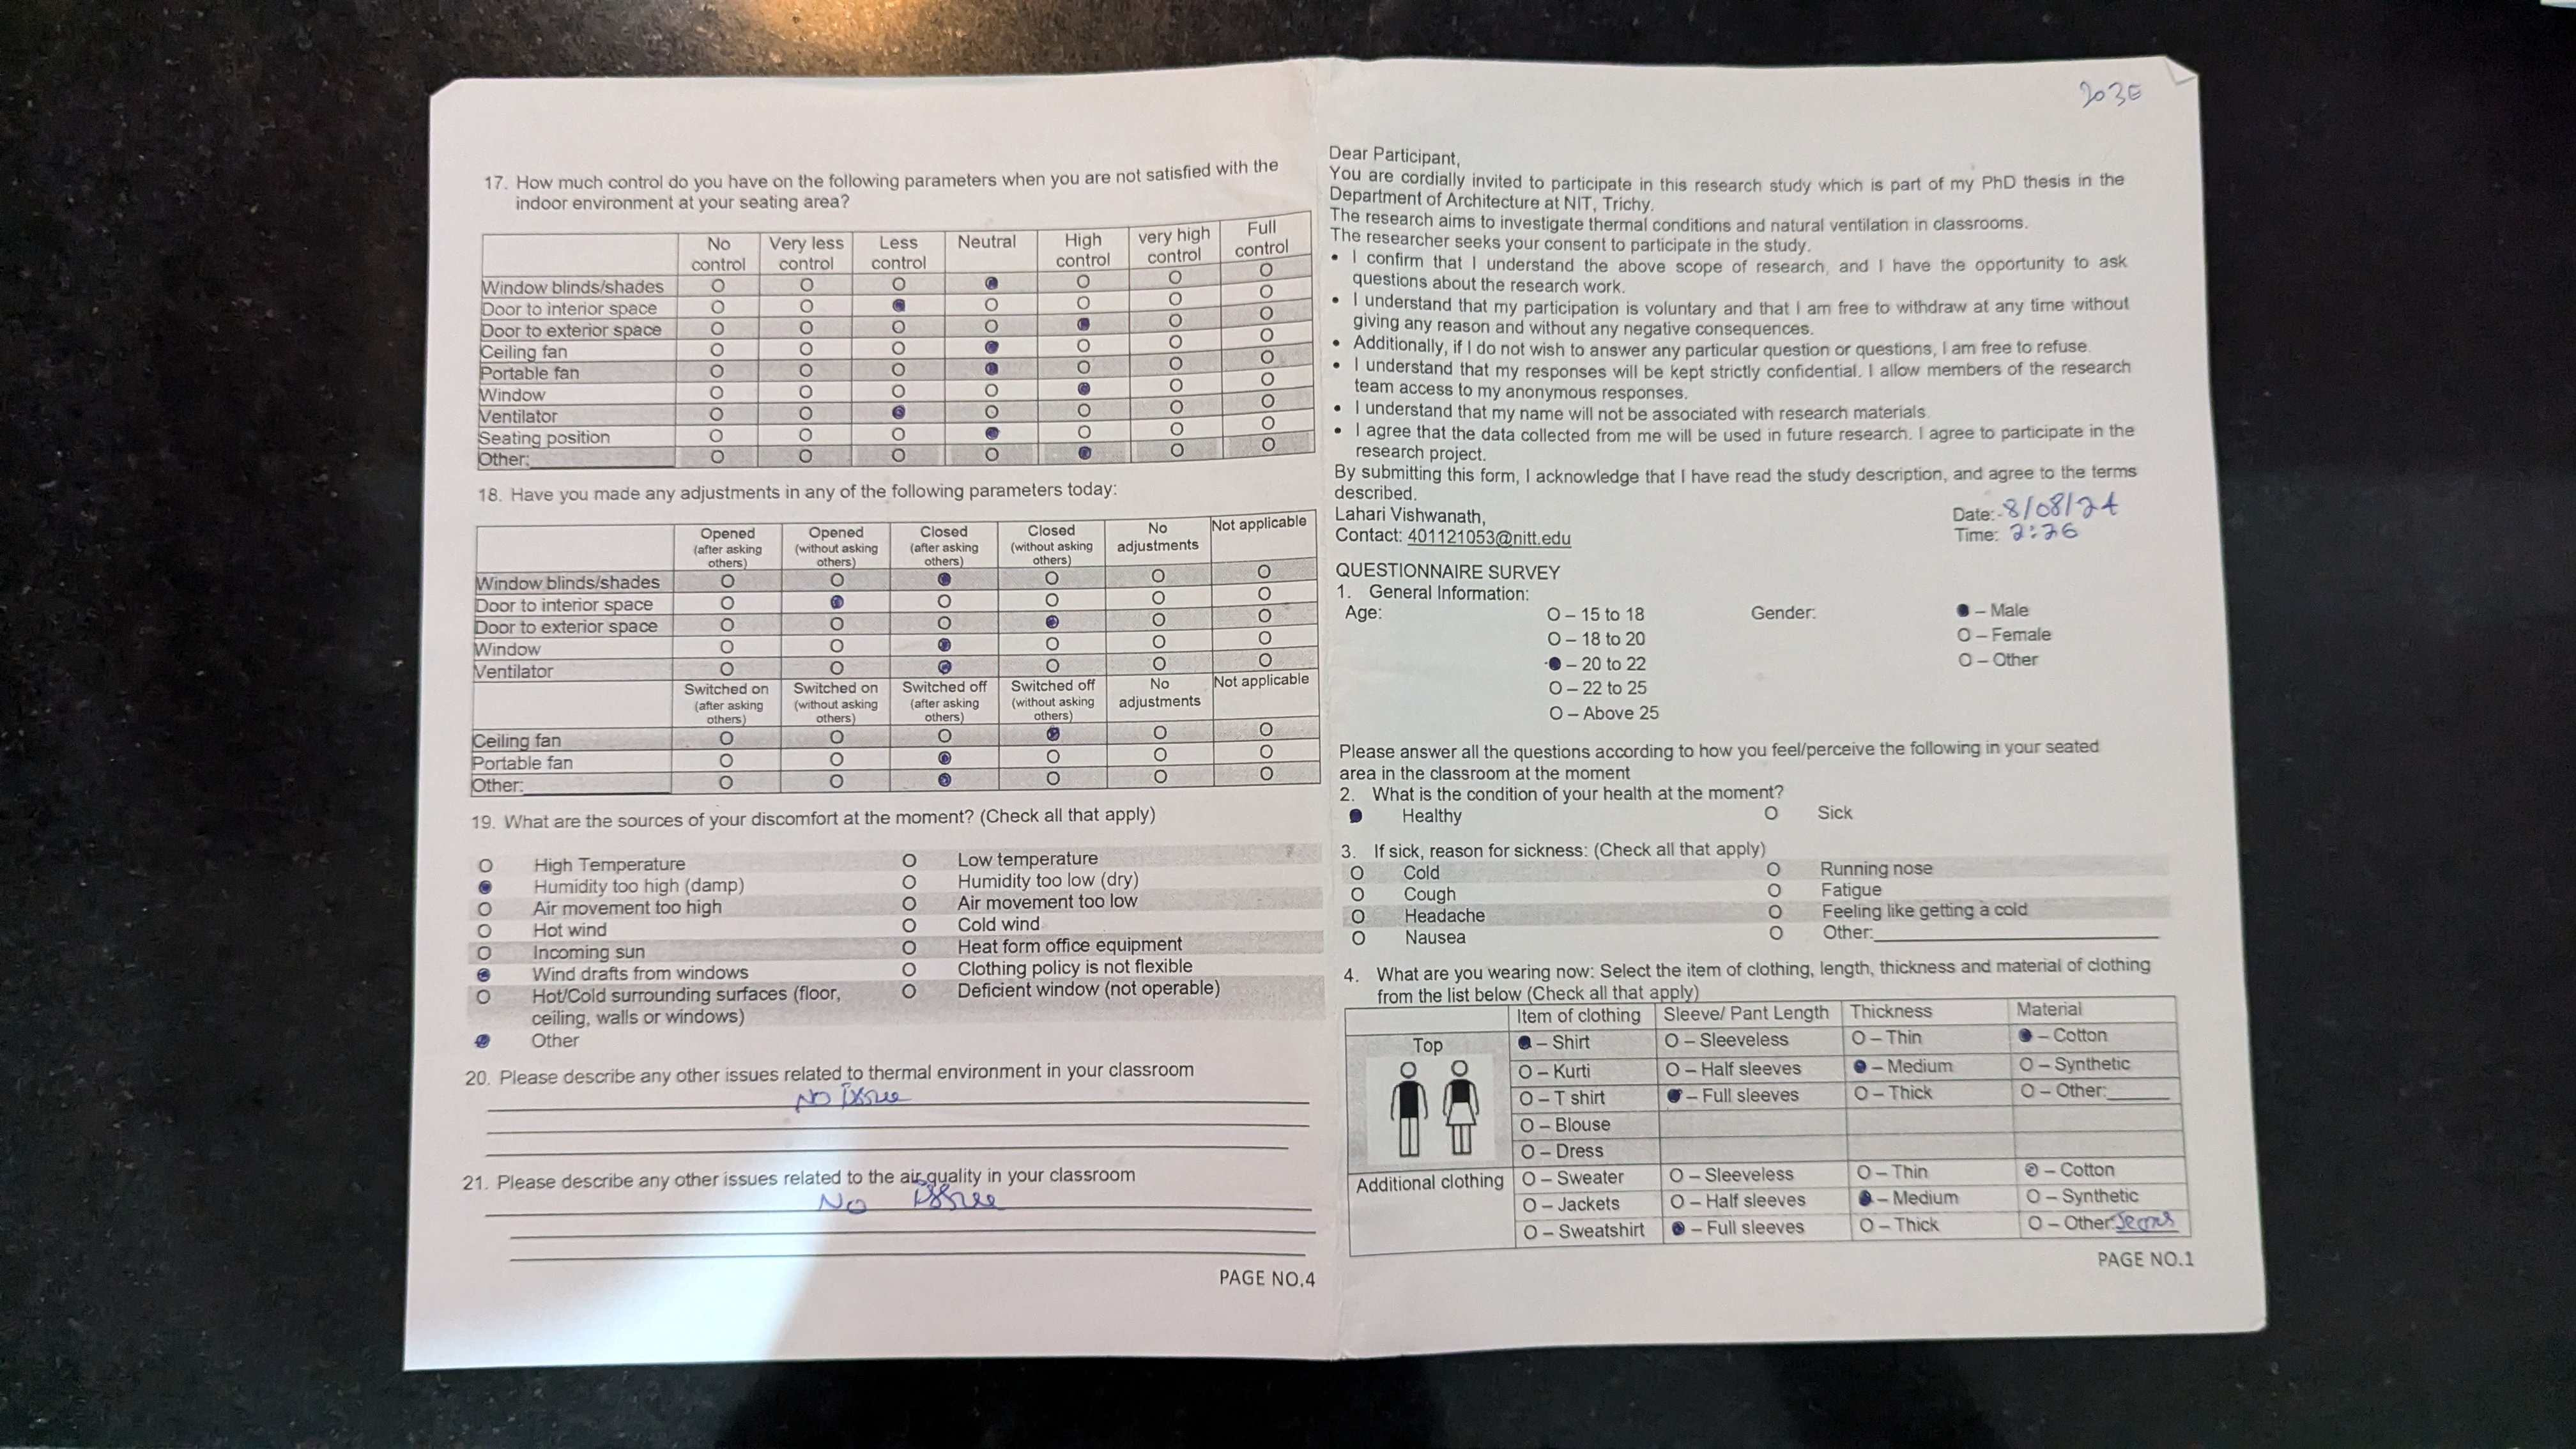 17. How much control do you have on the following parameters when you are not satisfied with the
indoor environment at your seating area?
No control Very less control Less control Neutral High control very high control Full control
Window blinds/shades O O O ● O O O
Door to interior space O O ● O O O O
Door to exterior space O O O O ● O O
Ceiling fan O O O ● O O O
Portable fan O O O ● O O O
Window O O O O ● O O
Ventilator O O ● O O O O
Seating position O O O ● O O O
Other: O O O O ● O O
18. Have you made any adjustments in any of the following parameters today:
Opened (after asking others) Opened (without asking others) Closed (after asking others) Closed (without asking others) No adjustments Not applicable
Window blinds/shades O O ● O O O
Door to interior space O ● O O O O
Door to exterior space O O O ● O O
Window O O ● O O O
Ventilator O O ● O O O
Switched on (after asking others) Switched on (without asking others) Switched off (after asking others) Switched off (without asking others) No adjustments Not applicable
Ceiling fan O O O ● O O
Portable fan O O ● O O O
Other: O O ● O O O
19. What are the sources of your discomfort at the moment? (Check all that apply)
O High Temperature O Low temperature
● Humidity too high (damp) O Humidity too low (dry)
O Air movement too high O Air movement too low
O Hot wind O Cold wind
O Incoming sun O Heat form office equipment
● Wind drafts from windows O Clothing policy is not flexible
O Hot/Cold surrounding surfaces (floor, O Deficient window (not operable)
ceiling, walls or windows)
● Other
20. Please describe any other issues related to thermal environment in your classroom
No issue
21. Please describe any other issues related to the air quality in your classroom
No issue
PAGE NO.4
203E
Dear Participant,
You are cordially invited to participate in this research study which is part of my PhD thesis in the
Department of Architecture at NIT, Trichy.
The research aims to investigate thermal conditions and natural ventilation in classrooms.
The researcher seeks your consent to participate in the study.
• I confirm that I understand the above scope of research, and I have the opportunity to ask
questions about the research work.
• I understand that my participation is voluntary and that I am free to withdraw at any time without
giving any reason and without any negative consequences.
• Additionally, if I do not wish to answer any particular question or questions, I am free to refuse.
• I understand that my responses will be kept strictly confidential. I allow members of the research
team access to my anonymous responses.
• I understand that my name will not be associated with research materials.
• I agree that the data collected from me will be used in future research. I agree to participate in the
research project.
By submitting this form, I acknowledge that I have read the study description, and agree to the terms
described.
Lahari Vishwanath, Date:-8/08/24
Contact: 401121053@nitt.edu Time: 2:26
QUESTIONNAIRE SURVEY
1. General Information:
Age: O – 15 to 18 Gender: ● – Male
O – 18 to 20 O – Female
● – 20 to 22 O – Other
O – 22 to 25
O – Above 25
Please answer all the questions according to how you feel/perceive the following in your seated
area in the classroom at the moment
2. What is the condition of your health at the moment?
● Healthy O Sick
3. If sick, reason for sickness: (Check all that apply)
O Cold O Running nose
O Cough O Fatigue
O Headache O Feeling like getting a cold
O Nausea O Other:
4. What are you wearing now: Select the item of clothing, length, thickness and material of clothing
from the list below (Check all that apply)
Item of clothing Sleeve/ Pant Length Thickness Material
Top ● – Shirt O – Sleeveless O – Thin ● – Cotton
O – Kurti O – Half sleeves ● – Medium O – Synthetic
O – T shirt ● – Full sleeves O – Thick O – Other:
O – Blouse
O – Dress
Additional clothing O – Sweater O – Sleeveless O – Thin ● – Cotton
O – Jackets O – Half sleeves ● – Medium O – Synthetic
O – Sweatshirt ● – Full sleeves O – Thick O – Other:
PAGE NO.1